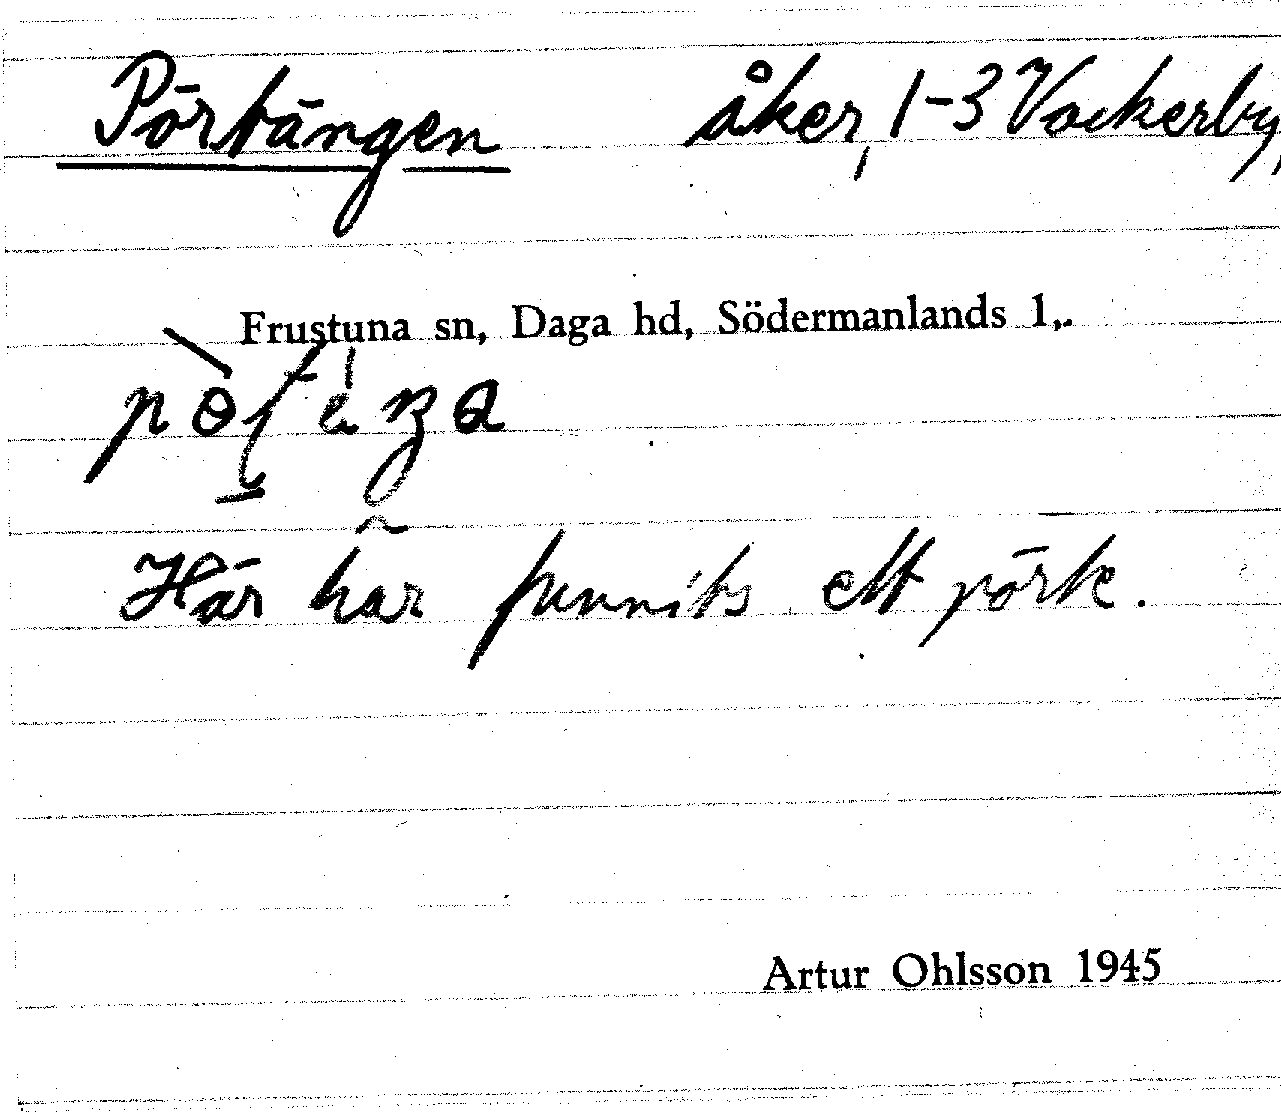 Pörtängen åker, 1-3 Vackerby,
Frustuna sn, Daga hd, Södermanlands l.
Här har funnits ett pörte.
Artur Ohlsson 1945